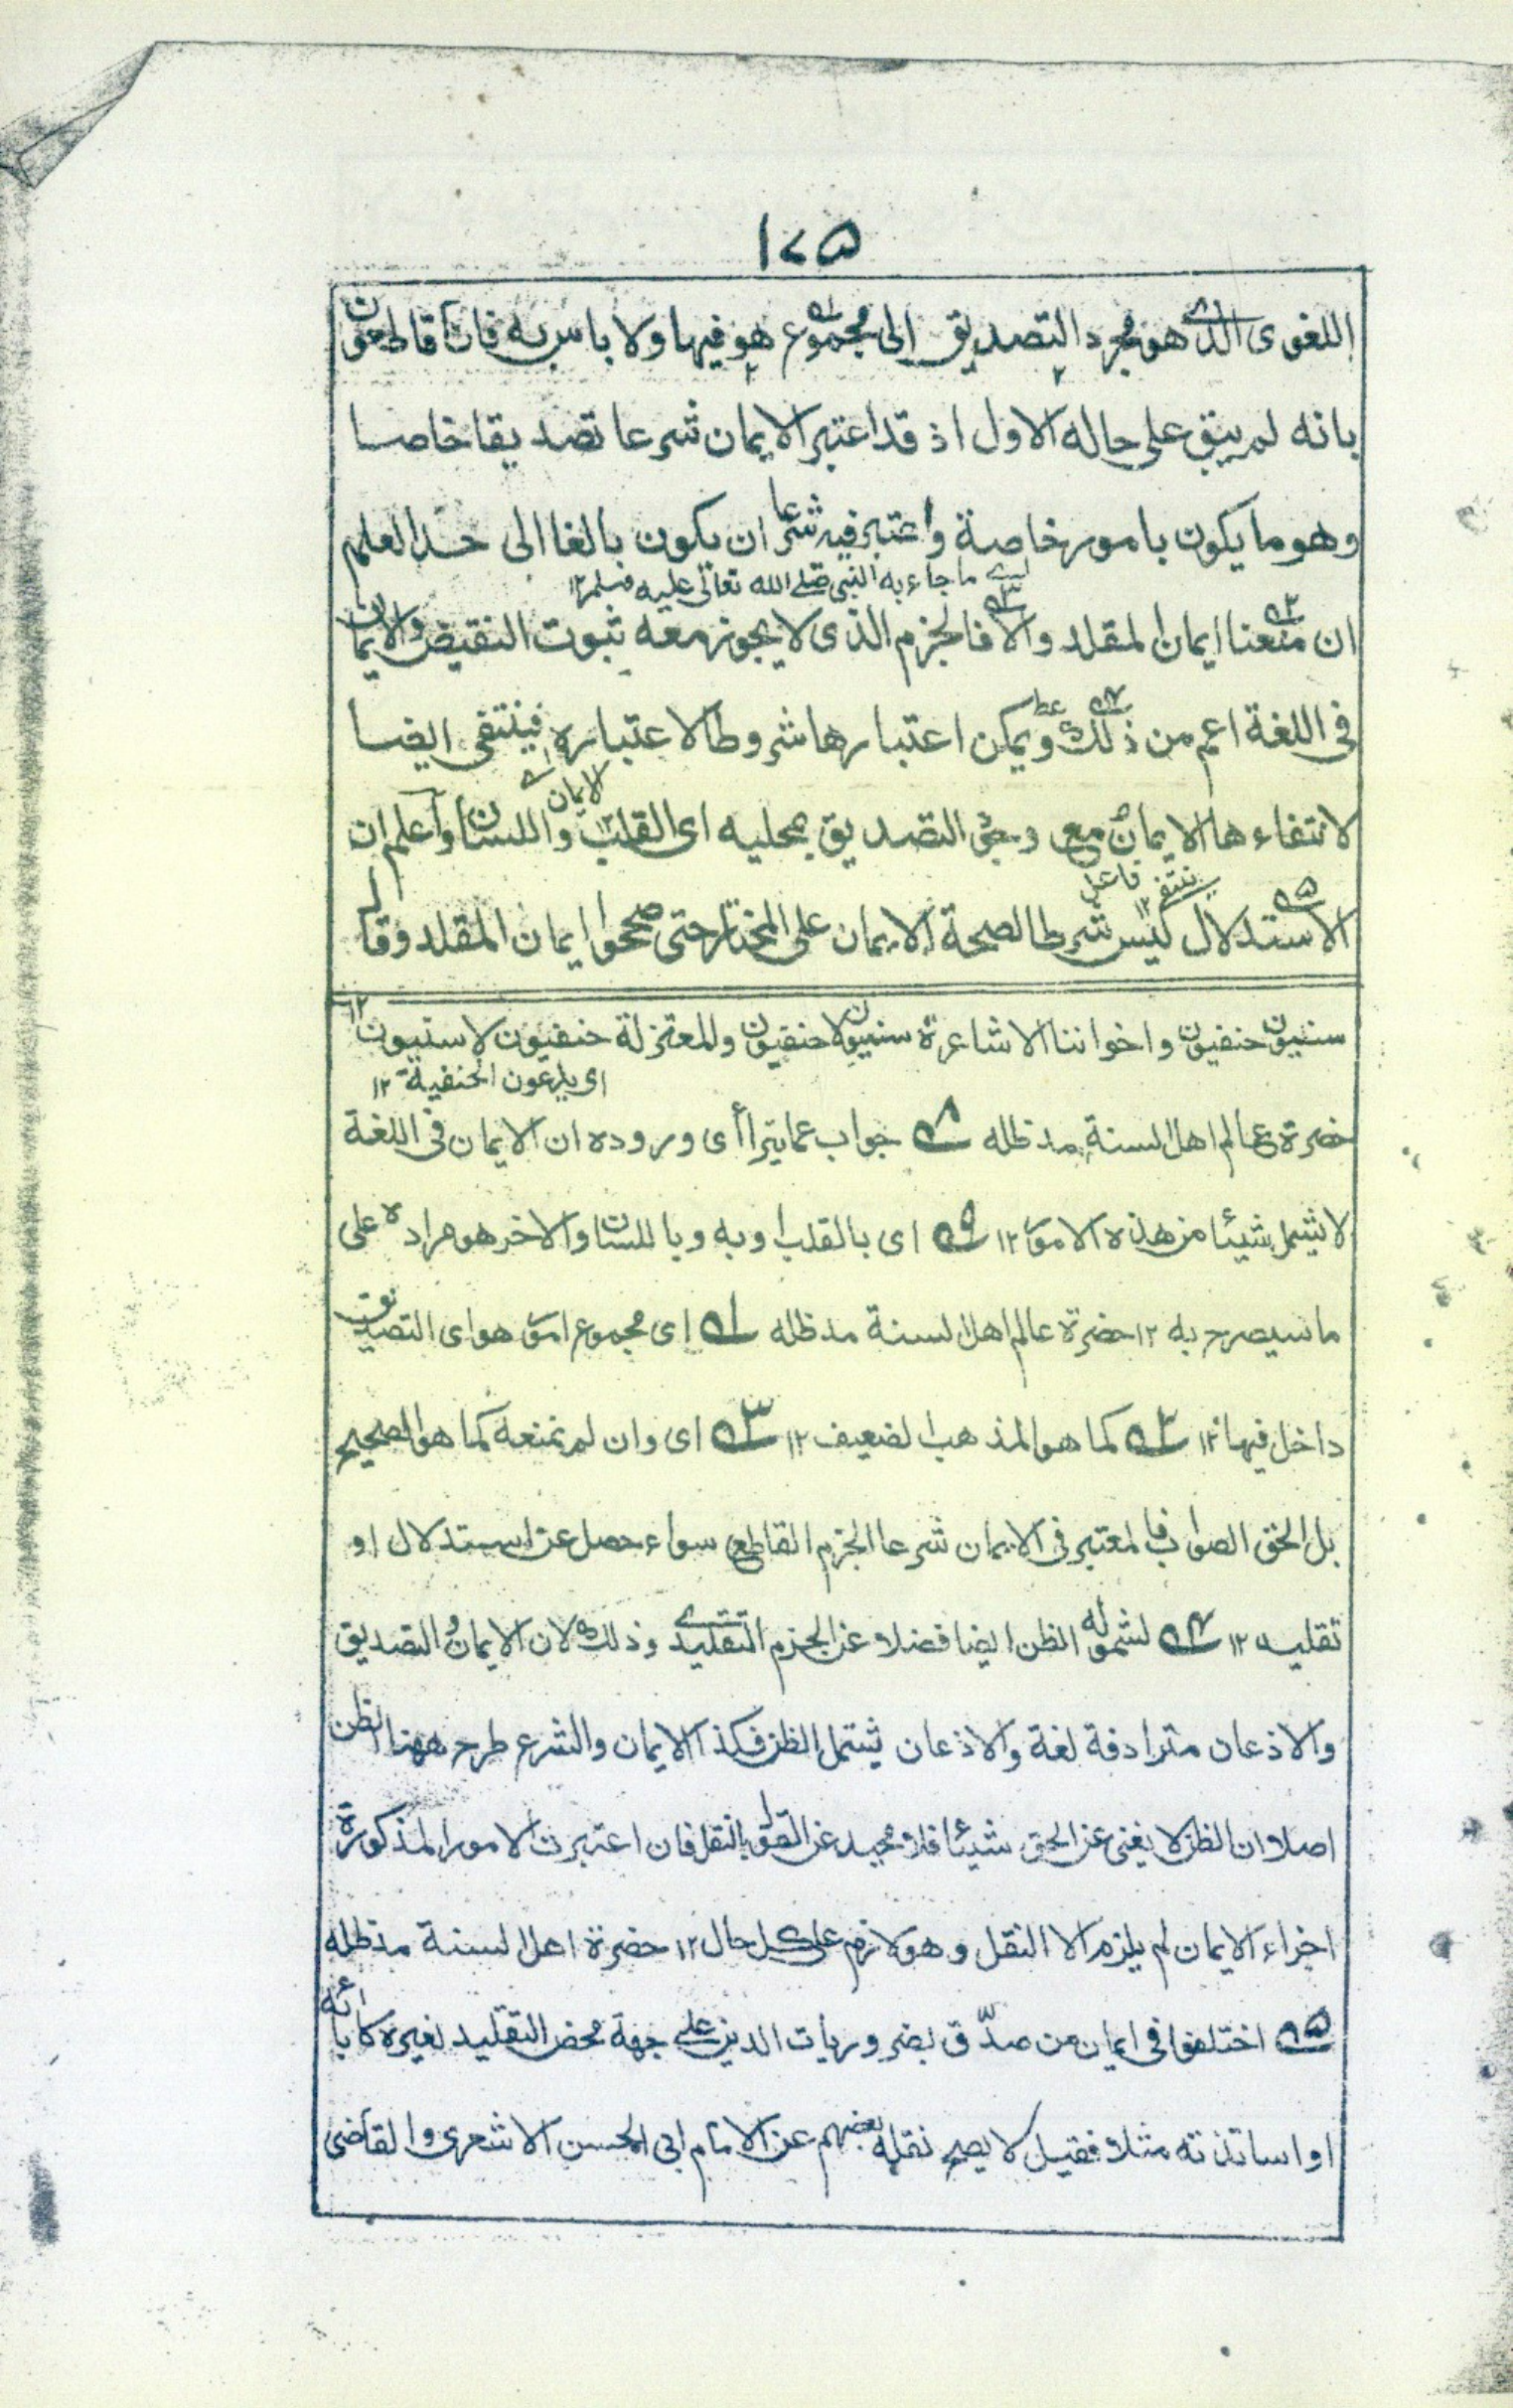 ١٧٥
اللغوی الذی هو مجرد التصدیق الی مجموع هو فیها ولا باس به فانا قاطعون
بانه لم یبق علی حاله الاول اذ قد اعتبر الایمان شرعا تصدیقا خاصا
وهو ما یکون بامور خاصة واعتبر فیه شرعا ان یکون بالغا الی حد العلم
ای ما جاء به النبی صلی الله تعالی علیه وسلم ۱۲
ان منعنا ایمان المقلد والا فالجزم الذی لا یجوز معه ثبوت النقیض والایمان
فی اللغة اعم من ذلک ویمکن اعتبارها شروطا لاعتباره فینتفی ایضا
ای الایمان ۱۲
لانتفاءها الایمان مع وجود التصدیق بمحلیه ای القلب واللسان واعلم ان
ینتفی فاعل ۱۲
الاستدلال لیس شرطا لصحة الایمان علی المختار حتی صححوا ایمان المقلد وقال
سنیون حنفیون واخواننا الاشاعرة سنیون لا حنفیون وللمعتزلة حنفیون لا سنیون ۱۲
ای یدعون الحنفیة ۱۲
حضرة عالم اهل السنة مد ظله ۸ جواب عما یترا أی وروده ان الایمان فی اللغة
لا یشمل شیئا من هذه الامور ۱۲ ۹ ای بالقلب او به وباللسان والاخر هو مراده علی
ما سیصرح به ۱۲ حضرة عالم اهل السنة مد ظله ۱ ای مجموع امور هو ای التصدیق
داخل فیها ۱۲ ۲ کما هو المذهب الضعیف ۱۲ ۳ ای وان لم نمنعه کما هو الصحیح
بل الحق الصواب فالمعتبر فی الایمان شرعا الجزم القاطع سواء حصل عن استدلال او
تقلید ۱۲ ۴ لشموله الظن ایضا فضلا عن الجزم التقلیدی وذلک لان الایمان والتصدیق
والاذعان مترادفة لغة والاذعان یشتمل الظن فکذا الایمان والشرع طرح ههنا الظن
اصلا وان الظن لا یغنی عن الحق شیئا فلا محید عن القول بالنقل فان اعتبرت الامور المذکورة
اجزاء الایمان لم یلزم الا النقل وهو لازم علی کل حال ۱۲ حضرة اهل السنة مد ظله
۵ اختلفوا فی ایمان من صدّق بضروریات الدین علی جهة محض التقلید لغیره کآبائه
او اساتذته مثلا فقیل لا یصح نقله بعضهم عن الامام ابی الحسن الاشعری والقاضی